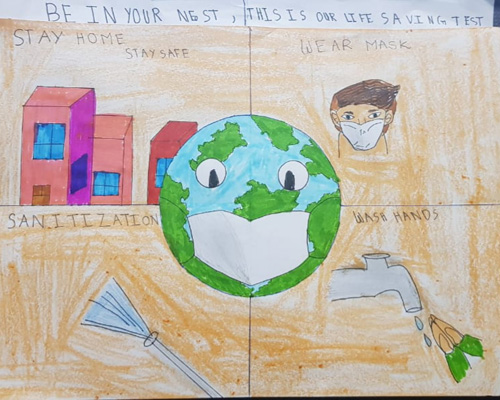 BE IN YOUR NEST, THIS IS OUR LIFE SAVING TEST
STAY HOME
STAY SAFE
WEAR MASK
SANITIZATION
WASH HANDS